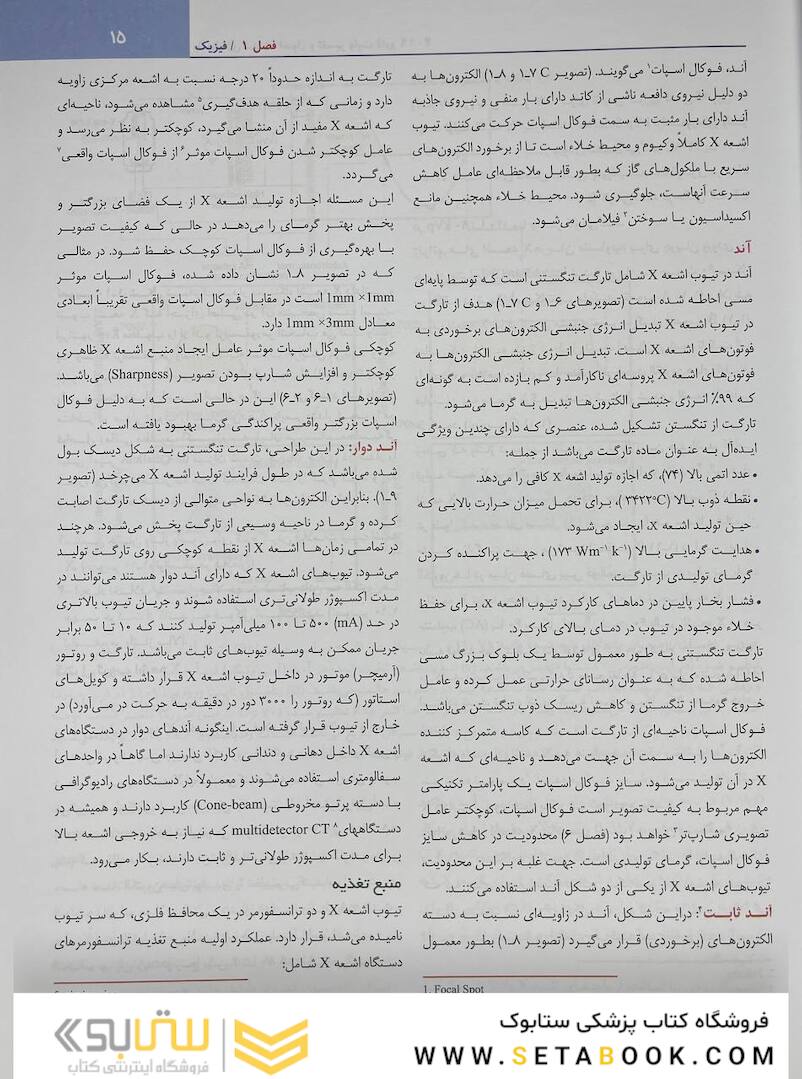 فصل ۱ / فیزیک
۱۵
آند، فوکال اسپات۱ می‌گویند. (تصویر ۷ C ـ۱ و ۸ـ۱) الکترون‌ها به
دو دلیل نیروی دافعه ناشی از کاتد دارای بار منفی و نیروی جاذبه
آند دارای بار مثبت به سمت فوکال اسپات حرکت می‌کنند. تیوب
اشعه X کاملاً وکیوم و محیط خلاء است تا از برخورد الکترون‌های
سریع با ملکول‌های گاز که بطور قابل ملاحظه‌ای عامل کاهش
سرعت آنهاست، جلوگیری شود. محیط خلاء همچنین مانع
اکسیداسیون یا سوختن۲ فیلامان می‌شود.
آند
آند در تیوب اشعه X شامل تارگت تنگستنی است که توسط پایه‌ای
مسی احاطه شده است (تصویرهای ۶ـ۱ و ۷ C ـ۱) هدف از تارگت
در تیوب اشعه X تبدیل انرژی جنبشی الکترون‌های برخوردی به
فوتون‌های اشعه X است. تبدیل انرژی جنبشی الکترون‌ها به
فوتون‌های اشعه X پروسه‌ای ناکارآمد و کم بازده است به گونه‌ای
که ۹۹٪ انرژی جنبشی الکترون‌ها تبدیل به گرما می‌شود.
تارگت از تنگستن تشکیل شده، عنصری که دارای چندین ویژگی
ایده‌آل به عنوان ماده تارگت می‌باشد از جمله:
• عدد اتمی بالا (۷۴)، که اجازه تولید اشعه X کافی را می‌دهد.
• نقطه ذوب بالا (۳۴۲۲°C)، برای تحمل میزان حرارت بالایی که
حین تولید اشعه X، ایجاد می‌شود.
• هدایت گرمایی بالا (۱۷۳ Wm⁻¹ k⁻¹) ، جهت پراکنده کردن
گرمای تولیدی از تارگت.
• فشار بخار پایین در دماهای کارکرد تیوب اشعه X، برای حفظ
خلاء موجود در تیوب در دمای بالای کارکرد.
تارگت تنگستنی به طور معمول توسط یک بلوک بزرگ مسی
احاطه شده که به عنوان رسانای حرارتی عمل کرده و عامل
خروج گرما از تنگستن و کاهش ریسک ذوب تنگستن می‌باشد.
فوکال اسپات ناحیه‌ای از تارگت است که کاسه متمرکز کننده
الکترون‌ها را به سمت آن جهت می‌دهد و ناحیه‌ای که اشعه
X در آن تولید می‌شود. سایز فوکال اسپات یک پارامتر تکنیکی
مهم مربوط به کیفیت تصویر است فوکال اسپات، کوچکتر عامل
تصویری شارپ‌تر۳ خواهد بود (فصل ۶) محدودیت در کاهش سایز
فوکال اسپات، گرمای تولیدی است. جهت غلبه بر این محدودیت،
تیوب‌های اشعه X از یکی از دو شکل آند استفاده می‌کنند.
آند ثابت۴: دراین شکل، آند در زاویه‌ای نسبت به دسته
الکترون‌های (برخوردی) قرار می‌گیرد (تصویر ۸ـ۱) بطور معمول
1. Focal Spot
تارگت به اندازه حدوداً ۲۰ درجه نسبت به اشعه مرکزی زاویه
دارد و زمانی که از حلقه هدف‌گیری۵ مشاهده می‌شود، ناحیه‌ای
که اشعه X مفید از آن منشا می‌گیرد، کوچکتر به نظر می‌رسد و
عامل کوچکتر شدن فوکال اسپات موثر۶ از فوکال اسپات واقعی۷
می‌گردد.
این مسئله اجازه تولید اشعه X از یک فضای بزرگتر و
پخش بهتر گرمای را می‌دهد در حالی که کیفیت تصویر
با بهره‌گیری از فوکال اسپات کوچک حفظ شود. در مثالی
که در تصویر ۱ـ۸ نشان داده شده، فوکال اسپات موثر
1mm ×1mm است در مقابل فوکال اسپات واقعی تقریباً ابعادی
معادل 1mm ×3mm دارد.
کوچکی فوکال اسپات موثر عامل ایجاد منبع اشعه X ظاهری
کوچکتر و افزایش شارپ بودن تصویر (Sharpness) می‌باشد.
(تصویرهای ۱ـ۶ و ۲ـ۶) این در حالی است که به دلیل فوکال
اسپات بزرگتر واقعی پراکندگی گرما بهبود یافته است.
آند دوار: در این طراحی، تارگت تنگستنی به شکل دیسک بول
شده می‌باشد که در طول فرایند تولید اشعه X می‌چرخد (تصویر
۹ـ۱). بنابراین الکترون‌ها به نواحی متوالی از دیسک تارگت اصابت
کرده و گرما در ناحیه وسیعی از تارگت پخش می‌شود. هرچند
در تمامی زمان‌ها اشعه X از نقطه کوچکی روی تارگت تولید
می‌شود. تیوب‌های اشعه X که دارای آند دوار هستند می‌توانند در
مدت اکسپوژر طولانی‌تری استفاده شوند و جریان تیوب بالاتری
در حد (mA) ۵۰۰ تا ۱۰۰ میلی‌آمپر تولید کنند که ۱۰ تا ۵۰ برابر
جریان ممکن به وسیله تیوب‌های ثابت می‌باشد. تارگت و روتور
(آرمیچر) موتور در داخل تیوب اشعه X قرار داشته و کویل‌های
استاتور (که روتور را ۳۰۰۰ دور در دقیقه به حرکت در می‌آورد) در
خارج از تیوب قرار گرفته است. اینگونه آندهای دوار در دستگاه‌های
اشعه X داخل دهانی و دندانی کاربرد ندارند اما گاهاً در واحدهای
سفالومتری استفاده می‌شوند و معمولاً در دستگاه‌های رادیوگرافی
با دسته پرتو مخروطی (Cone-beam) کاربرد دارند و همیشه در
دستگاههای۸ multidetector CT که نیاز به خروجی اشعه بالا
برای مدت اکسپوژر طولانی‌تر و ثابت دارند، بکار می‌رود.
منبع تغذیه
تیوب اشعه X و دو ترانسفورمر در یک محافظ فلزی، که سر تیوب
نامیده می‌شد، قرار دارد. عملکرد اولیه منبع تغذیه ترانسفورمرهای
دستگاه اشعه X شامل:
فروشگاه کتاب پزشکی ستابوک
WWW.SETABOOK.COM
ستابوک
فروشگاه اینترنتی کتاب